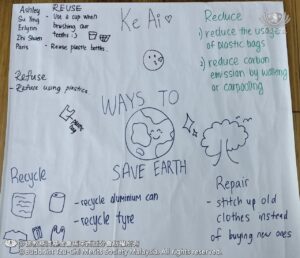 Ashley
Su Ying
Erlynn
Zhi Shuen
Paris
REUSE
- Use a cup when
brushing our
teeth :)
- Reuse plastic bottles.
Ke Ai
Reduce
1) reduce the usage
of plastic bags
2) reduce carbon
emission by walking
or carpooling
Refuse
- Refuse using plastics
plastic
bag
WAYS TO
SAVE EARTH
Recycle
- recycle aluminium can
- recycle tyre
Repair
- stitch up old
clothes instead
of buying new ones
Buddhist Tzu-Chi Merits Society Malaysia. All rights reserved.